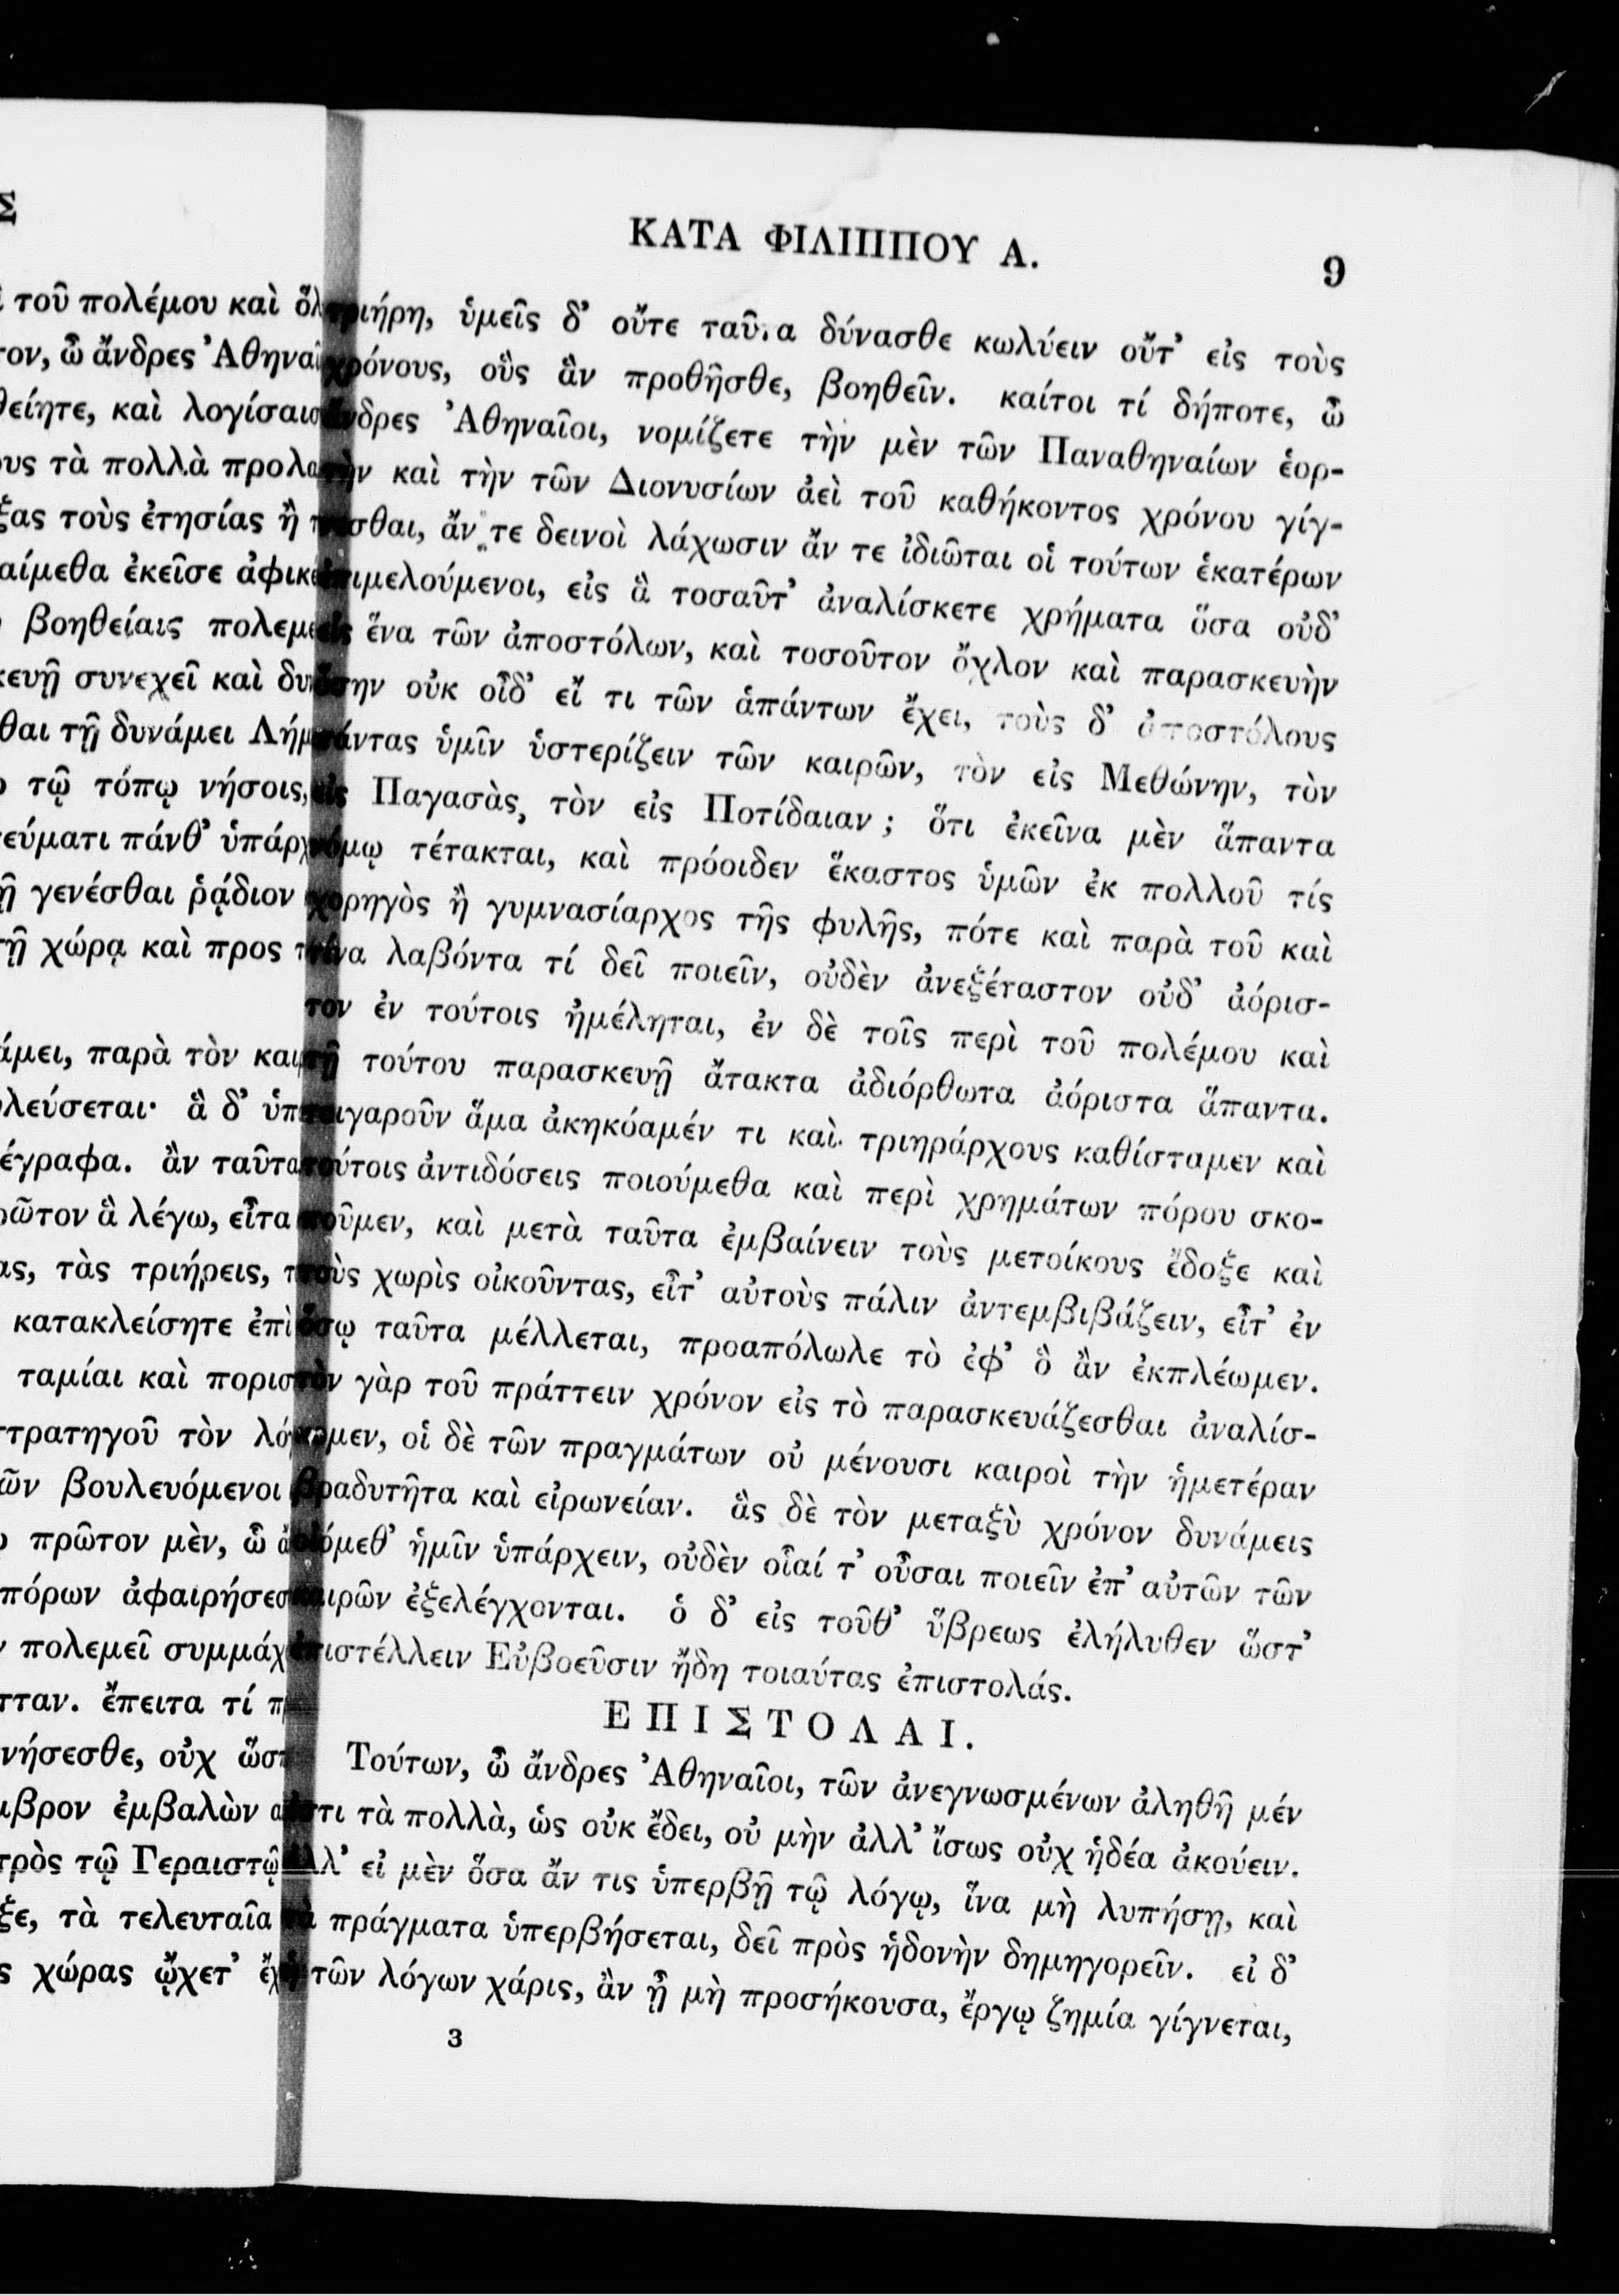 Σ
τοῦ πολέμου καὶ ὅλ
τον, ὦ ἄνδρες Ἀθηναῖ
θείητε, καὶ λογίσαισ
ους τὰ πολλὰ προλα
ξας τοὺς ἐτησίας ἢ τ
αίμεθα ἐκεῖσε ἀφικέ
βοηθείαις πολεμε
κευῇ συνεχεῖ καὶ δυ
θαι τῇ δυνάμει Λήμ
τῷ τόπῳ νήσοις,
εύματι πάνθʼ ὑπάρχ
ῇ γενέσθαι ῥᾴδιον
τῇ χώρᾳ καὶ προς τ
άμει, παρὰ τὸν και
λεύσεται· ἃ δʼ ὑπ
έγραφα. ἂν ταῦτα
ρῶτον ἃ λέγω, εἶτα
ας, τὰς τριήρεις, τ
κατακλείσητε ἐπὶ
ταμίαι καὶ πορισ
τρατηγοῦ τὸν λό
ῶν βουλευόμενοι
πρῶτον μὲν, ὦ ἄ
πόρων ἀφαιρήσεσ
πολεμεῖ συμμάχ
τταν. ἔπειτα τί π
νήσεσθε, οὐχ ὥσπ
μβρον ἐμβαλὼν α
πρὸς τῷ Γεραιστῷ
ξε, τὰ τελευταῖα
ς χώρας ᾤχετʼ ἔχ
ΚΑΤΑ ΦΙΛΙΠΠΟΥ Α.
9
τριήρη, ὑμεῖς δʼ οὔτε ταῦτα δύνασθε κωλύειν οὔτʼ εἰς τοὺς
χρόνους, οὓς ἂν προθῆσθε, βοηθεῖν. καίτοι τί δήποτε, ὦ
ἄνδρες Ἀθηναῖοι, νομίζετε τὴν μὲν τῶν Παναθηναίων ἑορ-
τὴν καὶ τὴν τῶν Διονυσίων ἀεὶ τοῦ καθήκοντος χρόνου γίγ-
νεσθαι, ἄν τε δεινοὶ λάχωσιν ἄν τε ἰδιῶται οἱ τούτων ἑκατέρων
ἐπιμελούμενοι, εἰς ἃ τοσαῦτʼ ἀναλίσκετε χρήματα ὅσα οὐδʼ
εἰς ἕνα τῶν ἀποστόλων, καὶ τοσοῦτον ὄχλον καὶ παρασκευὴν
ὅσην οὐκ οἶδʼ εἴ τι τῶν ἁπάντων ἔχει, τοὺς δʼ ἀποστόλους
πάντας ὑμῖν ὑστερίζειν τῶν καιρῶν, τὸν εἰς Μεθώνην, τὸν
εἰς Παγασὰς, τὸν εἰς Ποτίδαιαν; ὅτι ἐκεῖνα μὲν ἅπαντα
νόμῳ τέτακται, καὶ πρόοιδεν ἕκαστος ὑμῶν ἐκ πολλοῦ τίς
χορηγὸς ἢ γυμνασίαρχος τῆς φυλῆς, πότε καὶ παρὰ τοῦ καὶ
τίνα λαβόντα τί δεῖ ποιεῖν, οὐδὲν ἀνεξέταστον οὐδʼ ἀόρισ-
τον ἐν τούτοις ἠμέληται, ἐν δὲ τοῖς περὶ τοῦ πολέμου καὶ
τῇ τούτου παρασκευῇ ἄτακτα ἀδιόρθωτα ἀόριστα ἅπαντα.
τοιγαροῦν ἅμα ἀκηκόαμέν τι καὶ τριηράρχους καθίσταμεν καὶ
τούτοις ἀντιδόσεις ποιούμεθα καὶ περὶ χρημάτων πόρου σκο-
ποῦμεν, καὶ μετὰ ταῦτα ἐμβαίνειν τοὺς μετοίκους ἔδοξε καὶ
τοὺς χωρὶς οἰκοῦντας, εἶτʼ αὐτοὺς πάλιν ἀντεμβιβάζειν, εἶτʼ ἐν
ὅσῳ ταῦτα μέλλεται, προαπόλωλε τὸ ἐφʼ ὃ ἂν ἐκπλέωμεν.
τὸν γὰρ τοῦ πράττειν χρόνον εἰς τὸ παρασκευάζεσθαι ἀναλίσ-
κομεν, οἱ δὲ τῶν πραγμάτων οὐ μένουσι καιροὶ τὴν ἡμετέραν
βραδυτῆτα καὶ εἰρωνείαν. ἃς δὲ τὸν μεταξὺ χρόνον δυνάμεις
οἰόμεθʼ ἡμῖν ὑπάρχειν, οὐδὲν οἷαί τʼ οὖσαι ποιεῖν ἐπʼ αὐτῶν τῶν
καιρῶν ἐξελέγχονται. ὁ δʼ εἰς τοῦθʼ ὕβρεως ἐλήλυθεν ὥστʼ
ἐπιστέλλειν Εὐβοεῦσιν ἤδη τοιαύτας ἐπιστολάς.
ΕΠΙΣΤΟΛΑΙ.
Τούτων, ὦ ἄνδρες Ἀθηναῖοι, τῶν ἀνεγνωσμένων ἀληθῆ μέν
ἐστι τὰ πολλὰ, ὡς οὐκ ἔδει, οὐ μὴν ἀλλʼ ἴσως οὐχ ἡδέα ἀκούειν.
ἀλλʼ εἰ μὲν ὅσα ἄν τις ὑπερβῇ τῷ λόγῳ, ἵνα μὴ λυπήσῃ, καὶ
τὰ πράγματα ὑπερβήσεται, δεῖ πρὸς ἡδονὴν δημηγορεῖν. εἰ δʼ
ἡ τῶν λόγων χάρις, ἂν ᾖ μὴ προσήκουσα, ἔργῳ ζημία γίγνεται,
3